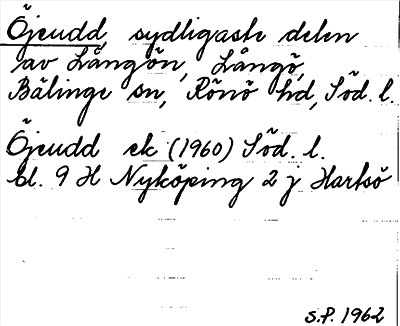 Öjeudd, sydligaste delen
av Långön, Långö,
Bälinge sn, Rönö hd, Söd. l.
Öjeudd ek (1960) Söd. l.
bl. 9 H Nyköping 2 j Hartsö
S.P. 1962